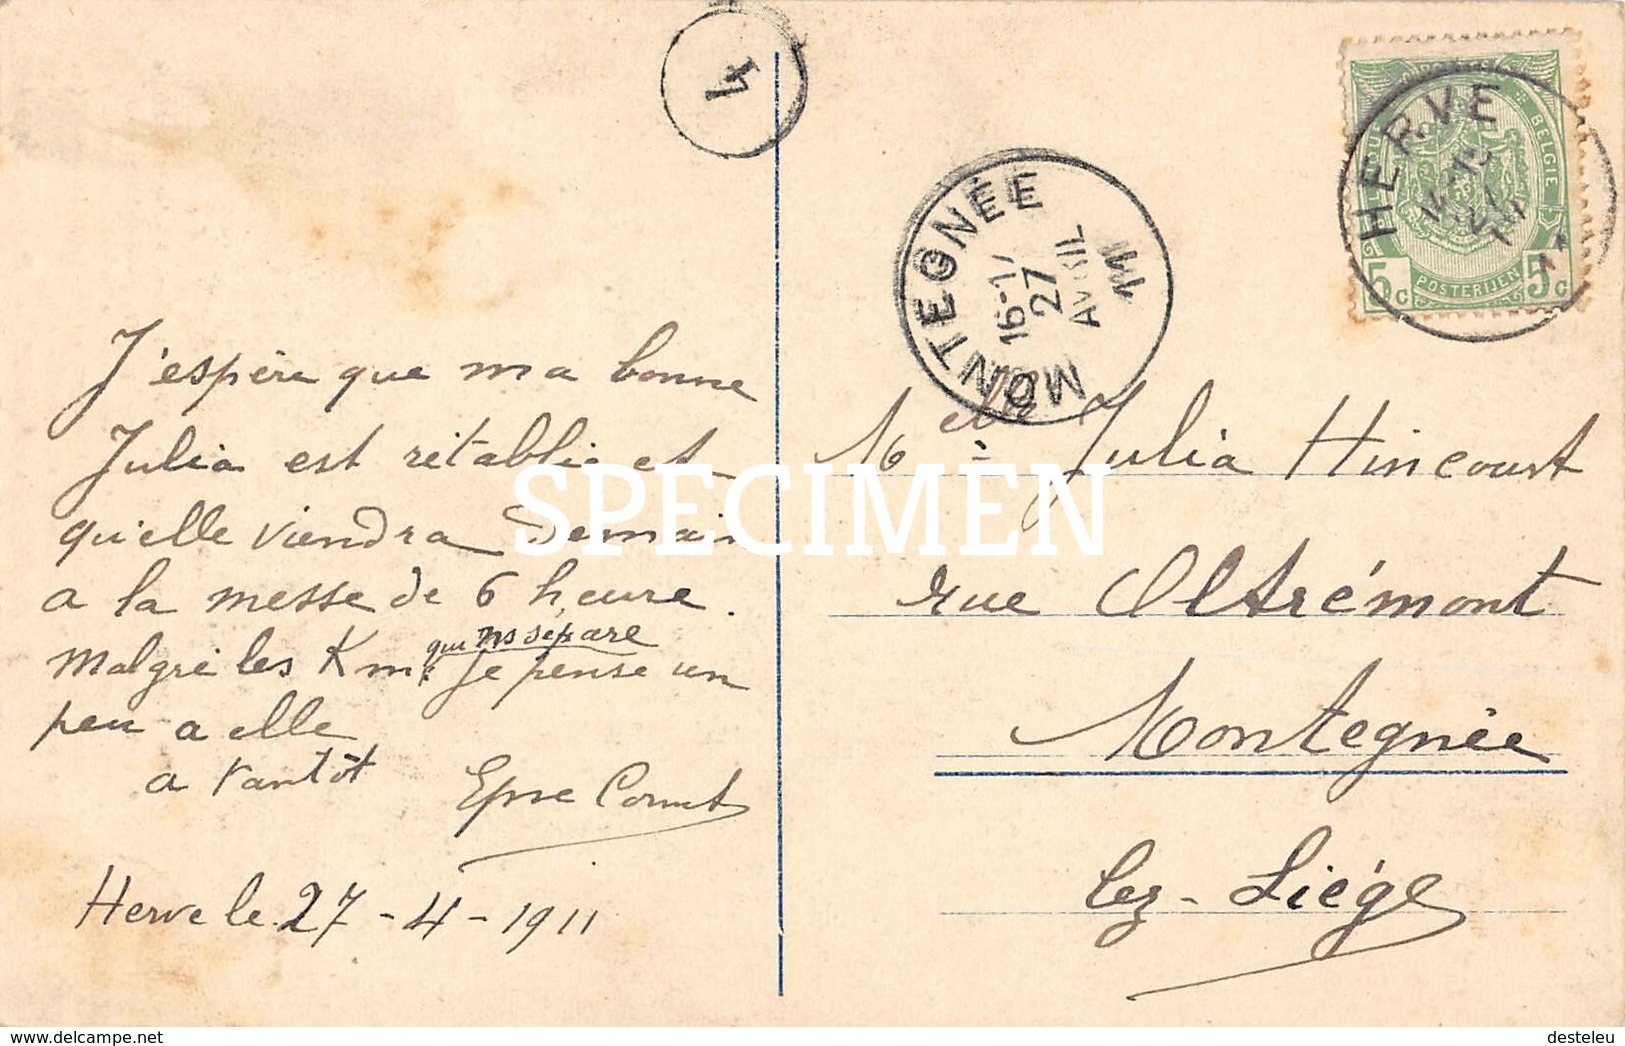 4
MONTEGNÉE
27
AVRIL
11
HERVE
BELGIE
5c POSTERIJEN 5c
J'espère que ma bonne
Julia est rétablie et
qu'elle viendra demain
a la messe de 6 heure.
Malgré les Km. qui ns sépare je pense un
peu a elle
a tantôt
Hervé le 27-4-1911
Melle Julia Hincourt
rue Oltrémont
Montegnée
lez-Liége
SPECIMEN
www.delcampe.net
desteleu